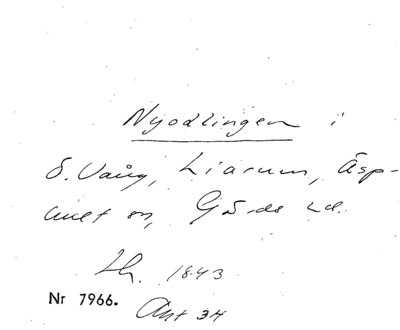 Nyodlingen i
Ö. Vång, Liarum, Äsp-
hult sn, Gärds hd.
Lh. 1843
Nr 7966.
Ant 34